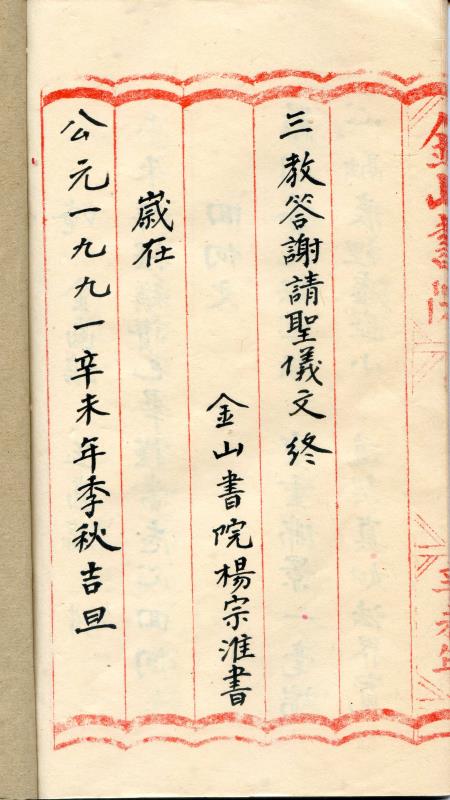 金山書院
辛未年
三教答謝請聖儀文終
金山書院楊宗淮書
歲在
公元一九九一辛未年季秋吉旦